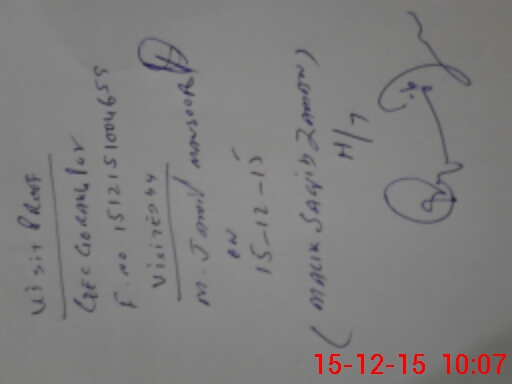 Visit PROOF
GEC GORAKHPUR
F. no 1512151004655
Visited by
M. Jamil MANSOORI
ON
15-12-15
(MALIK SAJID ZAMAN)
H/T
15-12-15 10:07